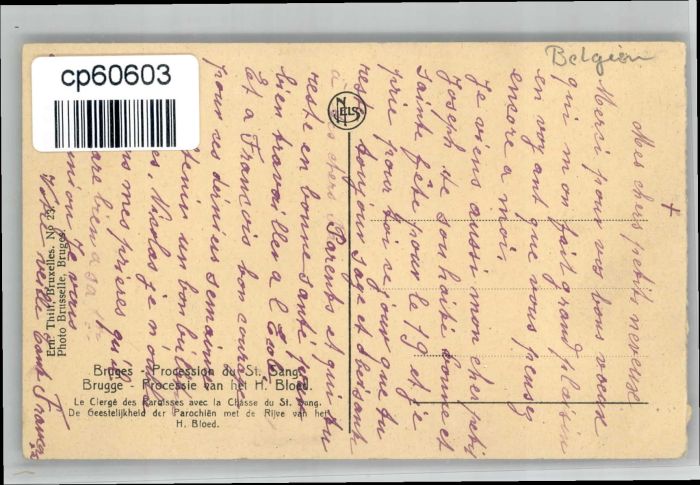 cp60603
Belgien
+
Mes chers petits neveuse
Merci pour vos bons voeux
qui m'on fait grand plaisir
en voyant que vous pensez
encore a moi,
Je viens aussi mon cher petit
Joseph te souhaité bonne et
sainte fête pour le 19 et je
prie pour toi ce jour que tu
reste toujour sage et obeisante
à tes chers Parents et que tu
reste en bonne santé pour
bien travailler a l'Ecole
Et a Francois bon courage
pour ces dernières semaines
tenir un bon bulletin
Nicolas je n'oublie
mes prières qu'il
bien a sa
Je vous
Votre vieille tante Franc
NELS
Ern. Thill, Bruxelles. No 23.
Photo Brusselle, Bruges.
Bruges - Procession du St. Sang.
Brugge - Processie van het H. Bloed.
Le Clergé des Paroisses avec la Châsse du St. Sang.
De Geestelijkheid der Parochiën met de Rijve van het
H. Bloed.